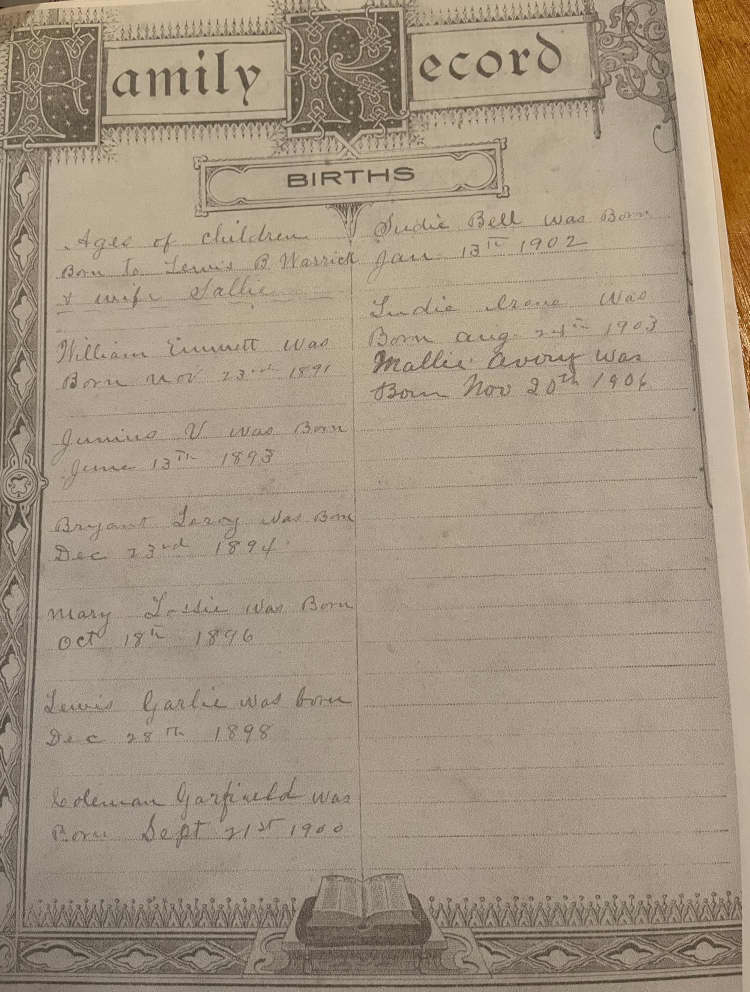 Family Record
BIRTHS
Ages of children
Born to Lewis B Warrick
& wife Sallie
William Emmett was
Born Nov 23rd 1891
Junius V was Born
June 13th 1893
Bryant Leroy was Born
Dec 23rd 1894
Mary Lossie was Born
Oct 18th 1896
Lewis Garlie was born
Dec 28th 1898
Coleman Garfield was
Born Sept 21st 1900
Sudie Bell was Born
Jan 13th 1902
Ludie Irene was
Born Aug 24th 1903
Mallie Avory was
Born Nov 20th 1906